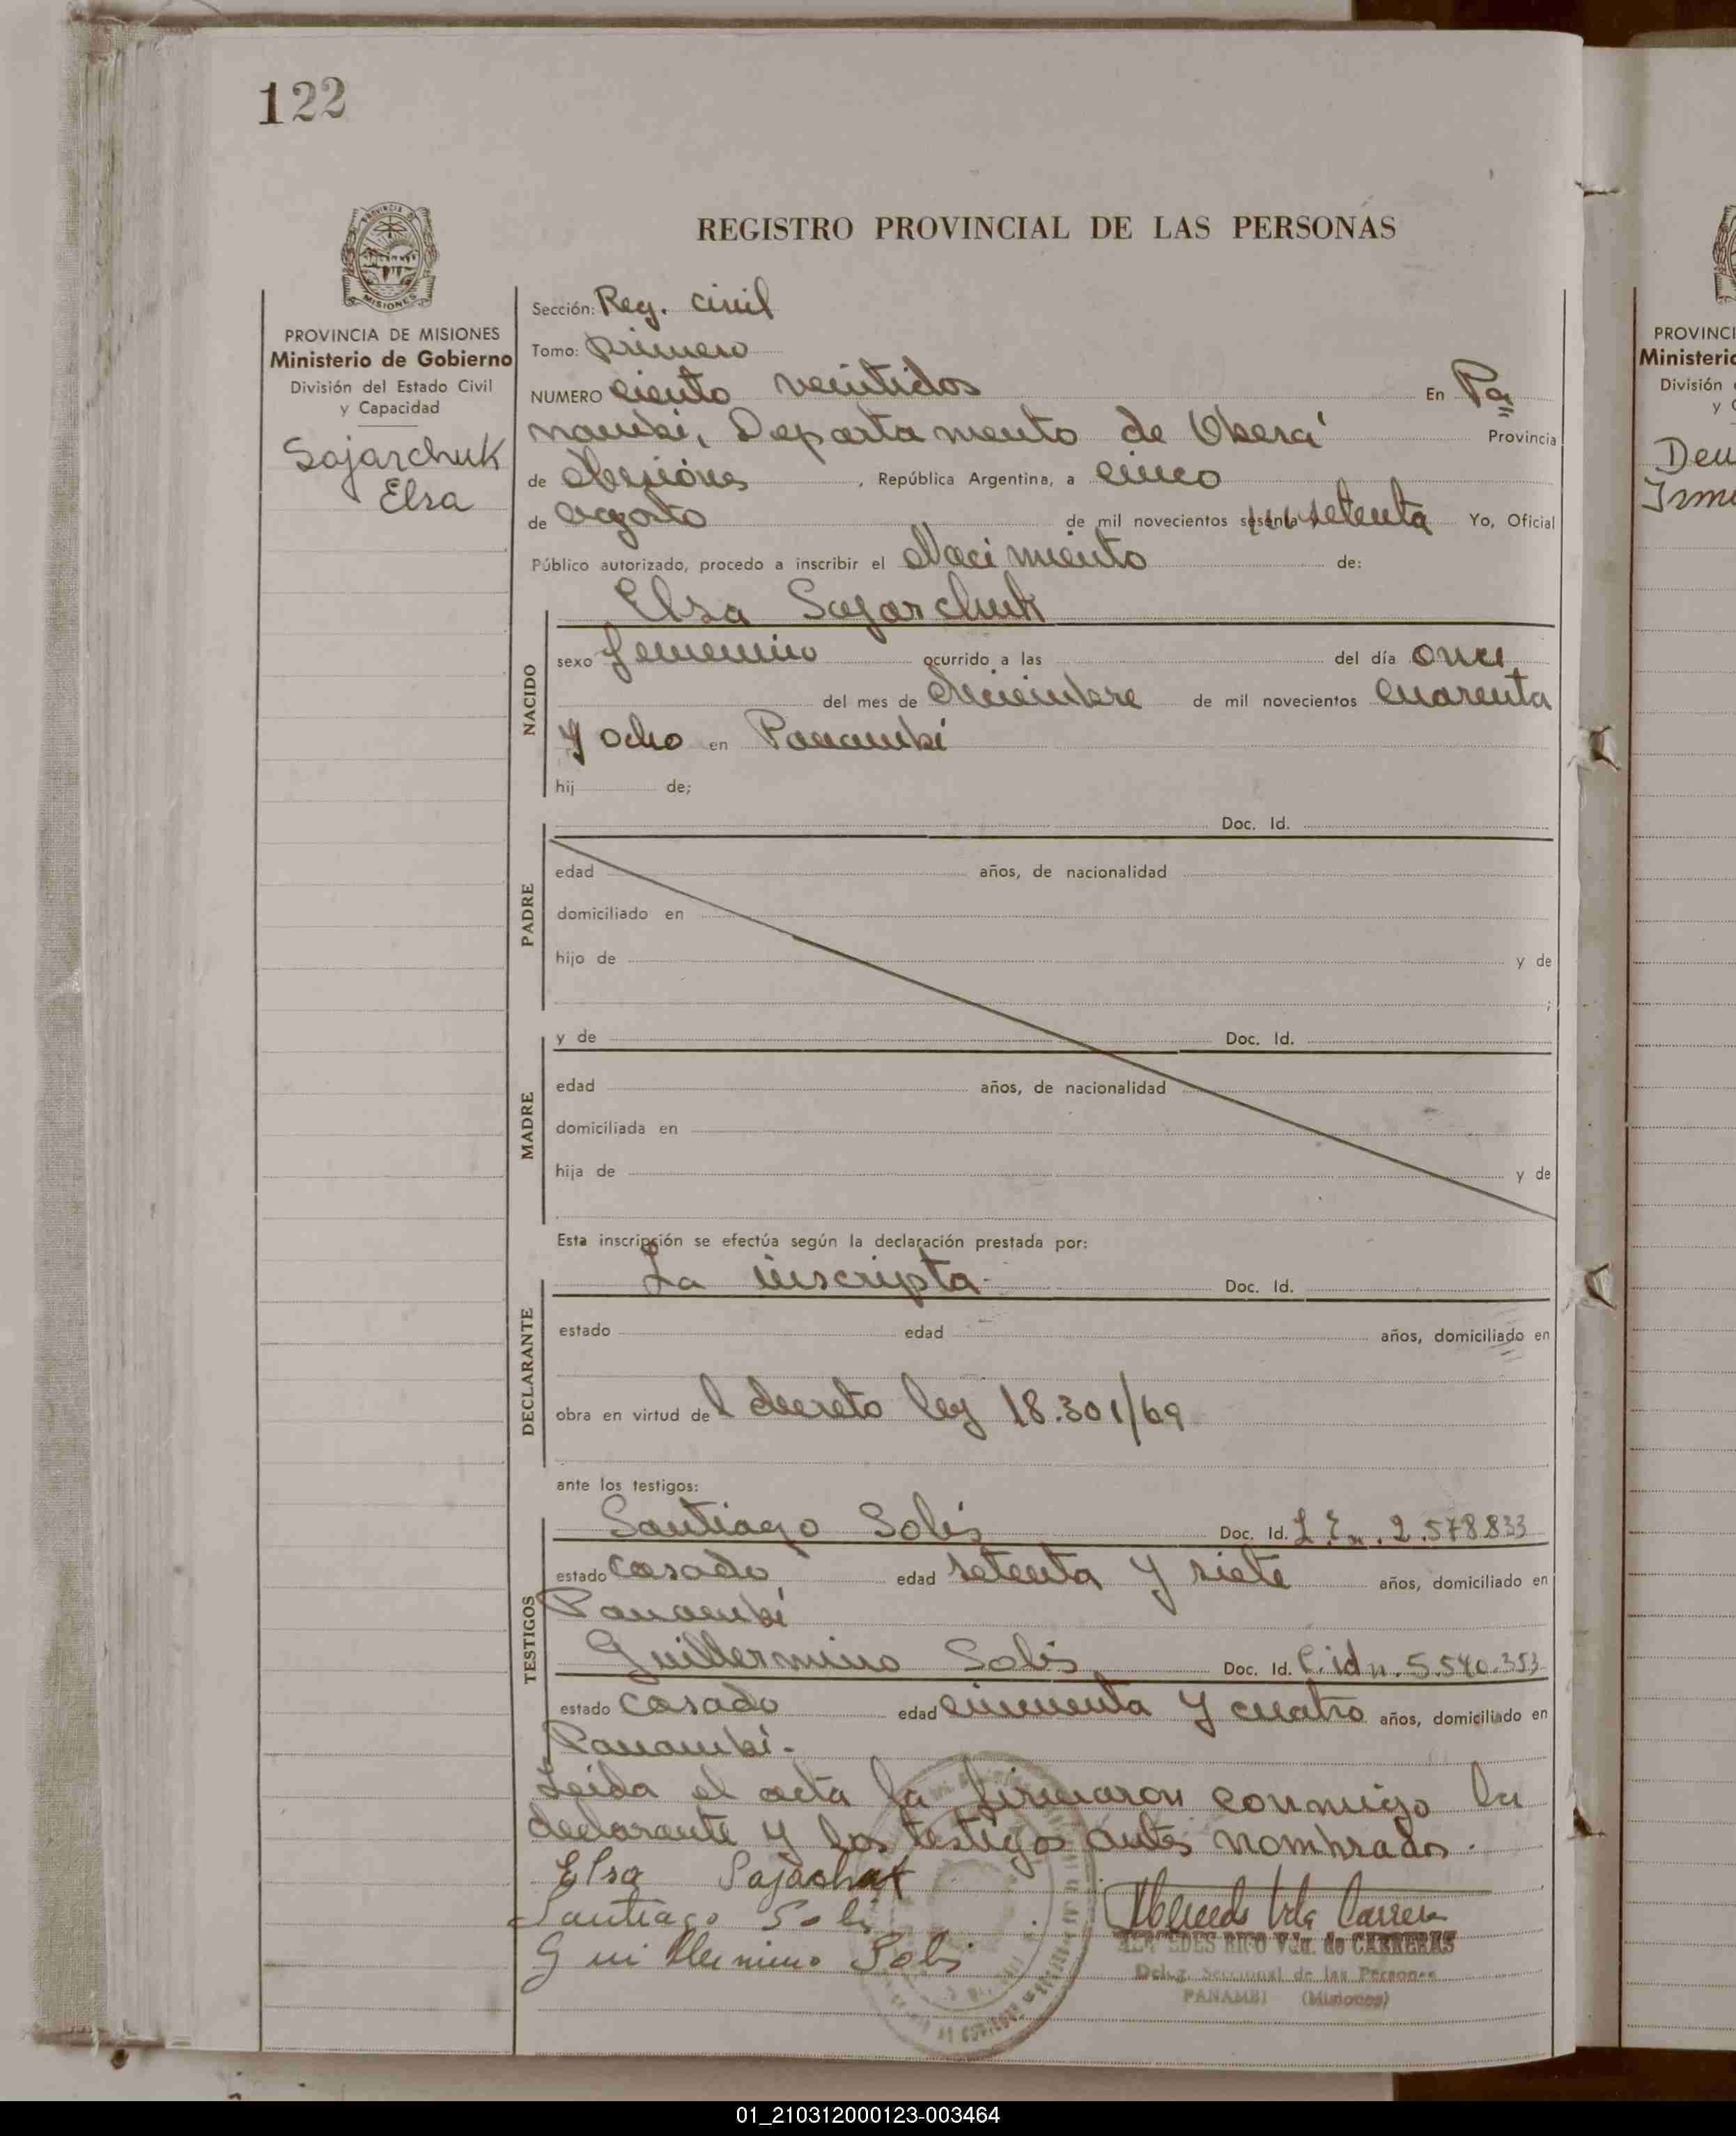 122
REGISTRO PROVINCIAL DE LAS PERSONAS
PROVINCIA DE MISIONES
Ministerio de Gobierno
División del Estado Civil
y Capacidad
Sajarchuk
Elsa
Sección: Reg. civil
Tomo: primero
NUMERO ciento veintidos En Pa
nambi, Departamento de Oberá Provincia
de Misiones, República Argentina, a cinco
de agosto de mil novecientos sesenta setenta Yo, Oficial
Público autorizado, procedo a inscribir el Nacimiento de:
Elsa Sajarchuk
NACIDO
sexo femenino ocurrido a las del día once
del mes de diciembre de mil novecientos cuarenta
y ocho en Panambí
hij de;
PADRE
Doc. Id.
edad años, de nacionalidad
domiciliado en
hijo de y de
;
MADRE
y de Doc. Id.
edad años, de nacionalidad
domiciliada en
hija de y de
Esta inscripción se efectúa según la declaración prestada por:
DECLARANTE
La inscripta- Doc. Id.
estado edad años, domiciliado en
obra en virtud del decreto ley 18.301/69
ante los testigos:
TESTIGOS
Santiago Solis Doc. Id. L.E.n. 2.578.833
estado casado edad setenta y siete años, domiciliado en
Panambí
Guillermino Solis Doc. Id. C.id n. 5.540.353
estado casado edad cincuenta y cuatro años, domiciliado en
Panambí.-
Leida el acta la firmaron conmigo la
declarante y los testigos antes nombrados.
Elsa
Santiago Soli
Guillermino Solis
MERCEDES RICO Vda. de CARRERAS
Deleg. Seccional de las Personas
PANAMBI (Misiones)
PROVINCI
Ministeri
División
y C
Deu
01_210312000123-003464